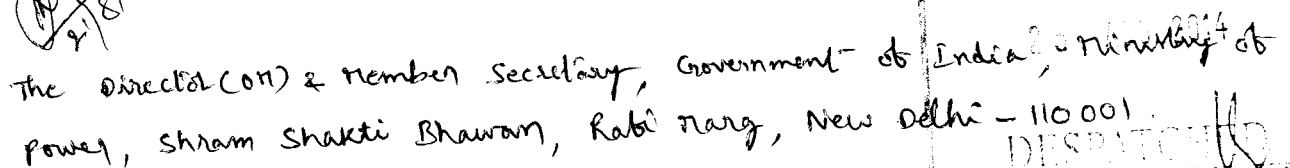 The Director (OM) & Member Secretary, Government of India, Ministry of
Power, Shram Shakti Bhawan, Rafi Marg, New Delhi - 110 001.
DESPATCHED